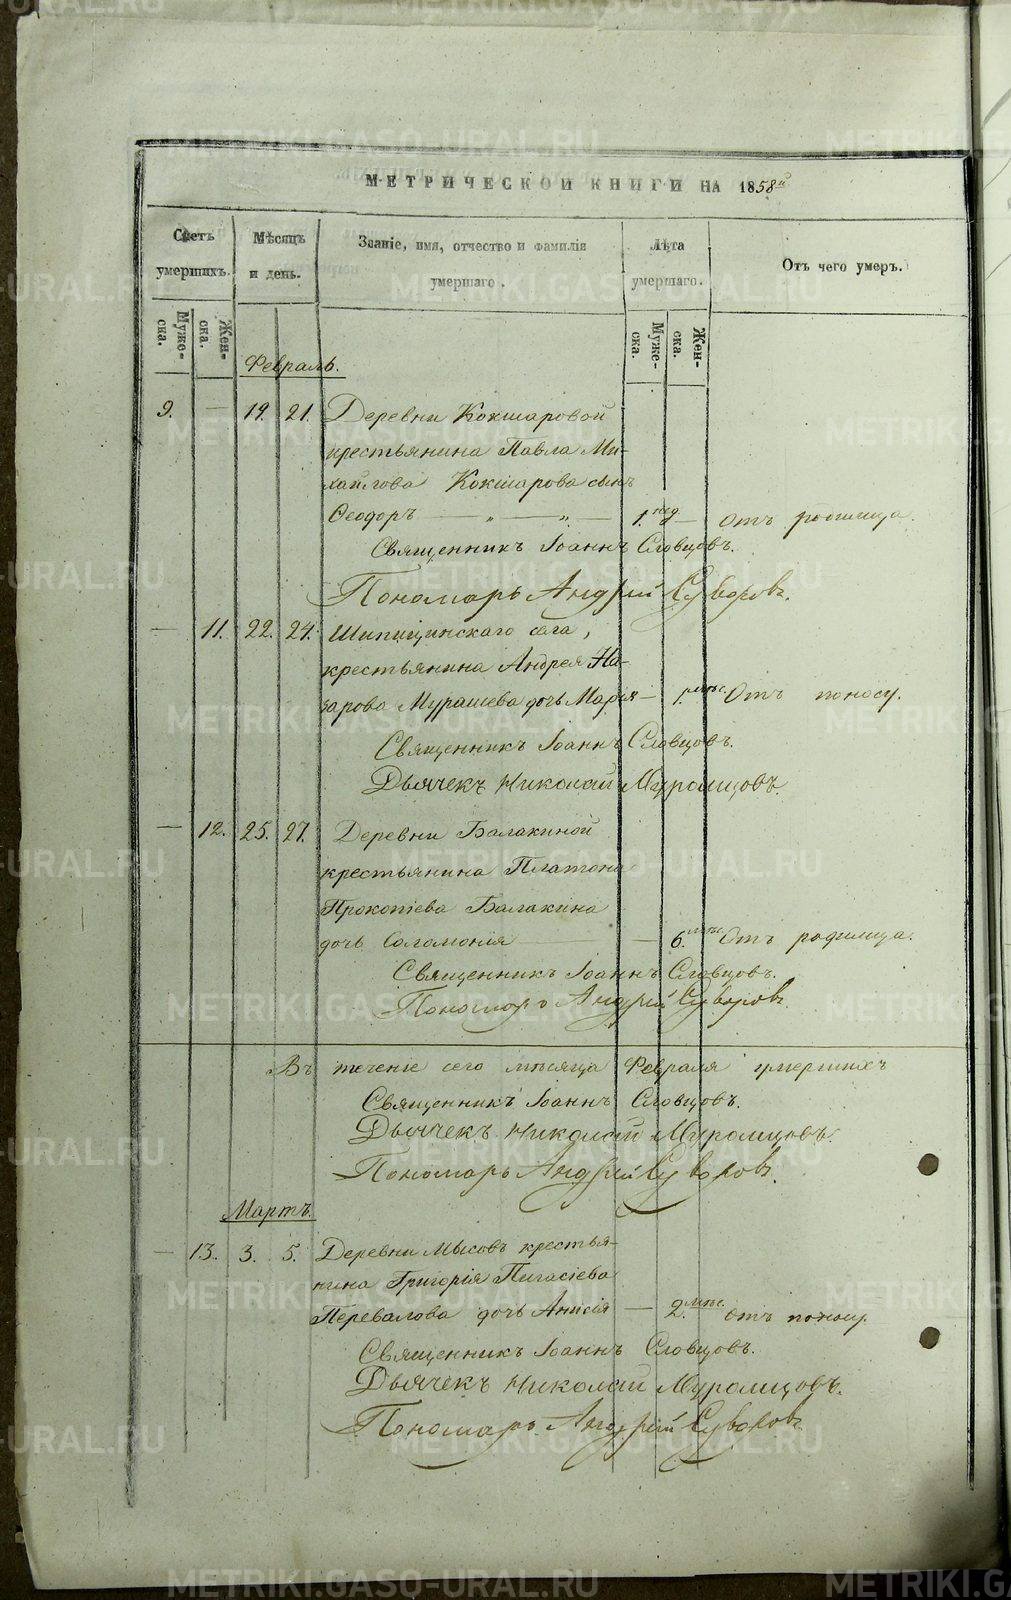 МЕТРИЧЕСКОЙ КНИГИ НА 1858й
Счетъ умершихъ.
Мѣсяцъ и день.
Званіе, имя, отчество и фамилія умершаго.
Лѣта умершаго.
Отъ чего умеръ.
Муже-ска.
Жен-ска.
Муже-ска.
Жен-ска.
Февраль.
9. — 19. 21. Деревни Кокшаровой
крестьянина Павла Ми-
хайлова Кокшарова сынъ
Ѳеодоръ — „ — „ — 1. нед — Отъ родимца.
Священникъ Іоаннъ Словцовъ.
Пономарь Андрей Суворовъ.
— 11. 22. 24. Шипицинскаго села,
крестьянина Андрея На-
зарова Мурашева дочь Марія — 1. мѣс. Отъ поносу.
Священникъ Іоаннъ Словцовъ.
Дьячекъ Николай Муромцовъ.
— 12. 25. 27. Деревни Балакиной
крестьянина Платона
Прокопіева Балакина
дочь Соломонія — — 6. мѣс. Отъ родимца.
Священникъ Іоаннъ Словцовъ.
Пономарь Андрей Суворовъ.
Въ теченіе сего мѣсяца Февраля умершихъ
Священникъ Іоаннъ Словцовъ.
Дьячекъ Николай Муромцовъ.
Пономарь Андрей Суворовъ.
Мартъ.
— 13. 3. 5. Деревни Мысовъ крестья-
нина Григорія Пигасіева
Перевалова дочь Анисія — 2. мѣс. отъ поносу.
Священникъ Іоаннъ Словцовъ.
Дьячекъ Николай Муромцовъ.
Пономарь Андрей Суворовъ.
METRIKI.GASO-URAL.RU